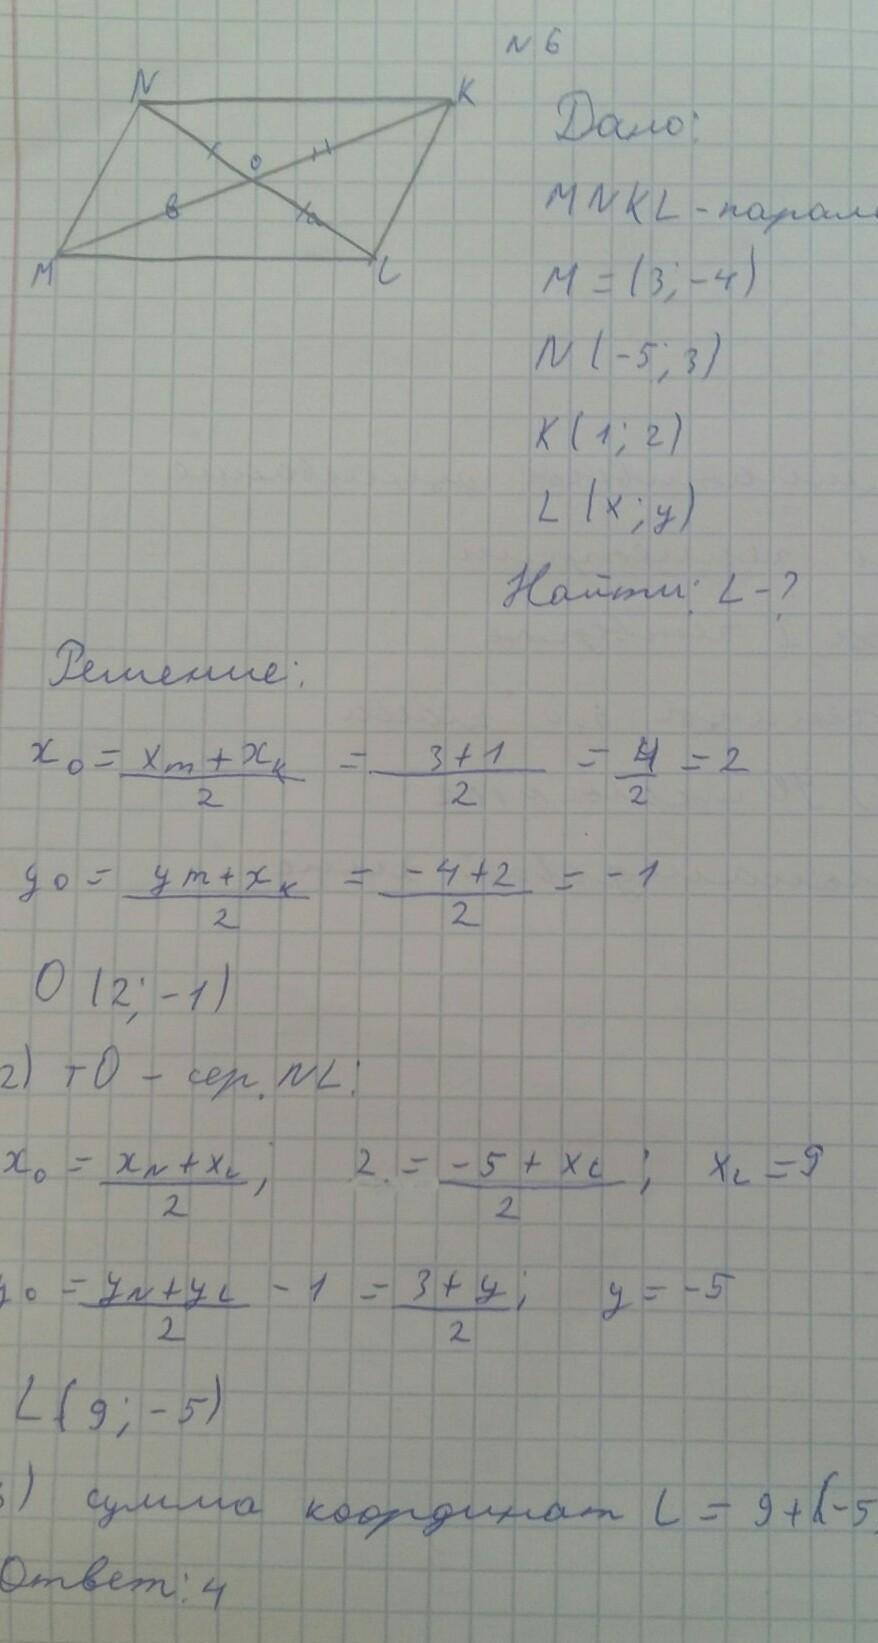 N 6
N
K
o
в
a
M
L
Дано:
MNKL - парал
M = (3; -4)
N (-5; 3)
K (1; 2)
L (x; y)
Найти: L - ?
Решение:
x₀ = (xₘ + xₖ)/2 = (3+1)/2 = 4/2 = 2
y₀ = (yₘ + xₖ)/2 = (-4+2)/2 = -1
O (2; -1)
2) тO - сер. NL:
x₀ = (x_N + x_L)/2; 2 = (-5 + x_L)/2; x_L = 9
y₀ = (y_N + y_L)/2 - 1 = (3 + y)/2; y = -5
L (9; -5)
3) сумма координат L = 9 + (-5
Ответ: 4